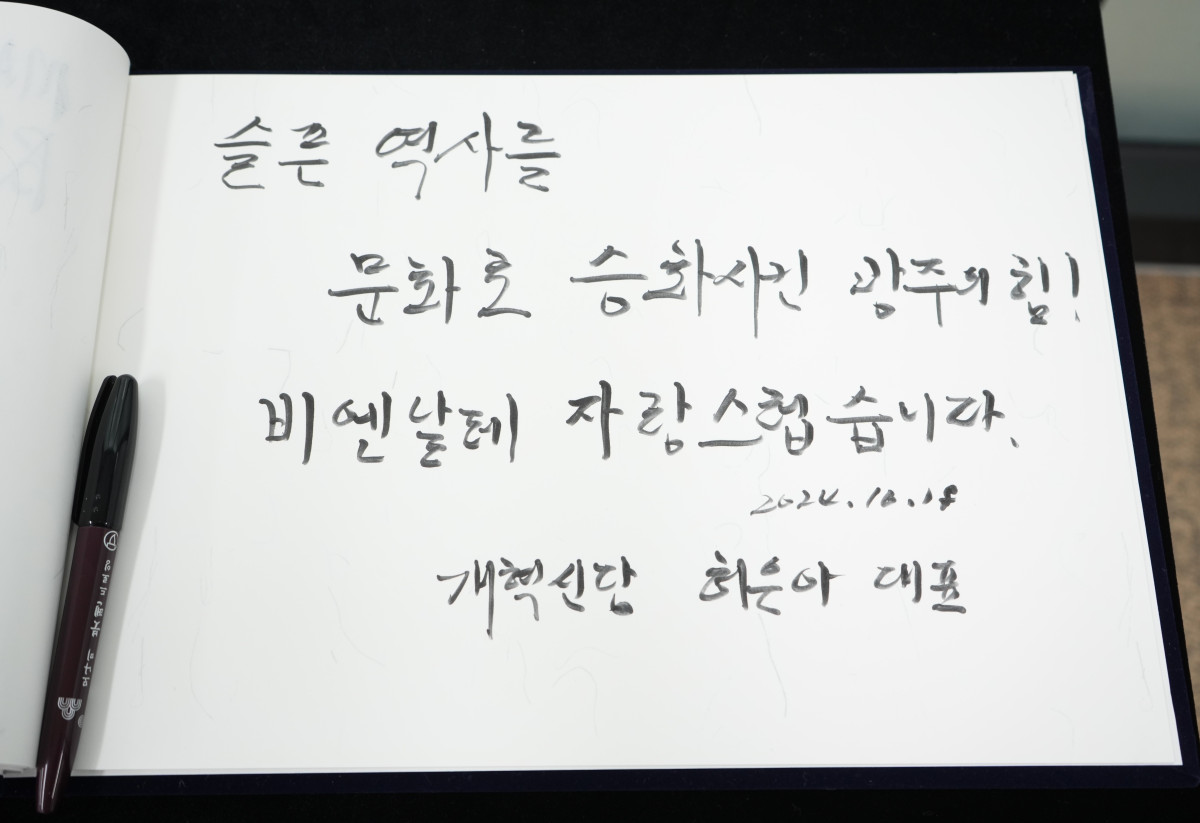 슬픈 역사를
문화로 승화시킨 광주의 힘!
비엔날레 자랑스럽습니다.
2024.10.18
개혁신당 허은아 대표
붓펜